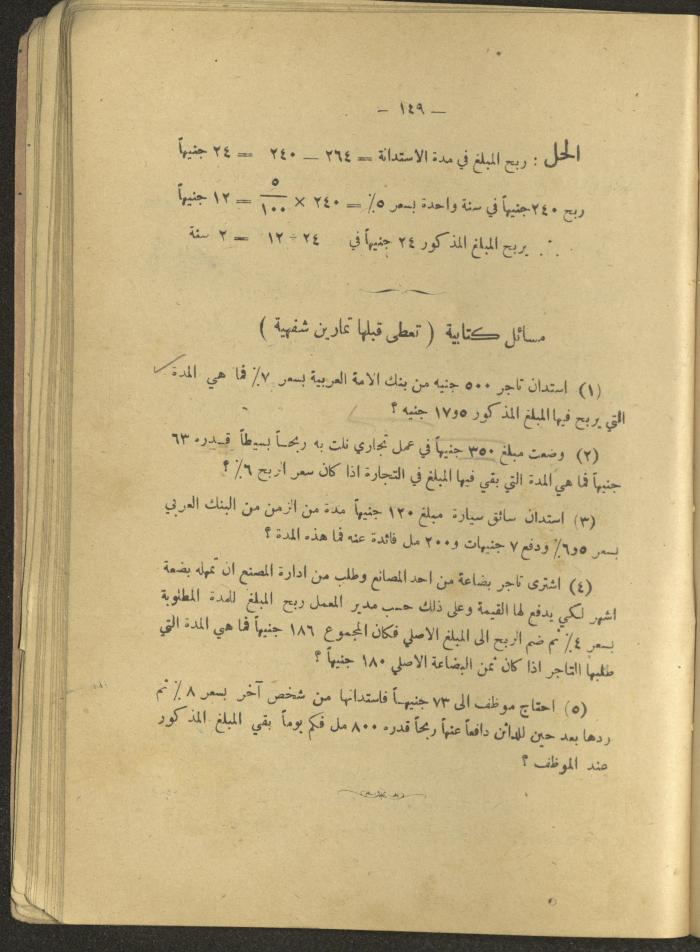 — ١٤٩ —
الحل : ربح المبلغ في مدة الاستدانة = ٢٦٤ — ٢٤٠ = ٢٤ جنيهاً
ربح ٢٤٠ جنيهاً في سنة واحدة بسعر ٥٪ = ٢٤٠ × ٥/١٠٠ = ١٢ جنيهاً
∴ يربح المبلغ المذكور ٢٤ جنيهاً في ٢٤ ÷ ١٢ = ٢ سنة
مسائل كتابية ( تعطى قبلها تمارين شفهية )
(١) استدان تاجر ٥٠٠ جنيه من بنك الامة العربية بسعر ٧٪ فما هي المدة
التي يربح فيها المبلغ المذكور ١٧٫٥ جنيه ؟
(٢) وضعت مبلغ ٣٥٠ جنيهاً في عمل تجاري نلت به ربحاً بسيطاً قدره ٦٣
جنيهاً فما هي المدة التي بقي فيها المبلغ في التجارة اذا كان سعر الربح ٦٪ ؟
(٣) استدان سائق سيارة مبلغ ١٢٠ جنيهاً مدة من الزمن من البنك العربي
بسعر ٦٫٥٪ ودفع ٧ جنيهات و٢٠٠ مل فائدة عنه فما هذه المدة ؟
(٤) اشترى تاجر بضاعة من احد المصانع وطلب من ادارة المصنع ان تمهله بضعة
اشهر لكي يدفع لها القيمة وعلى ذلك حسب مدير المعمل ربح المبلغ للمدة المطلوبة
بسعر ٤٪ ثم ضم الربح الى المبلغ الاصلي فكان المجموع ١٨٦ جنيهاً فما هي المدة التي
طلبها التاجر اذا كان ثمن البضاعة الاصلي ١٨٠ جنيهاً ؟
(٥) احتاج موظف الى ٧٣ جنيهاً فاستدانها من شخص آخر بسعر ٨٪ ثم
ردها بعد حين للدائن دافعاً عنها ربحاً قدره ٨٠٠ مل فكم يوماً بقي المبلغ المذكور
عند الموظف ؟